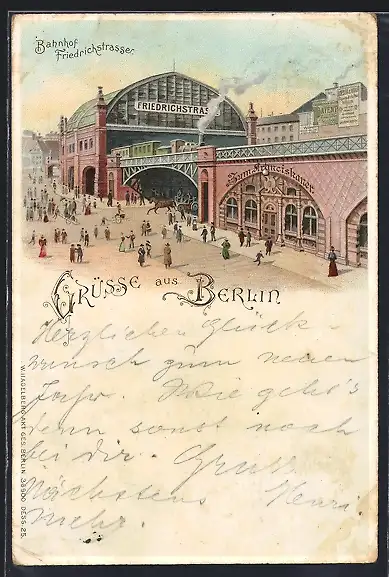 Bahnhof
Friedrichstrasse.
FRIEDRICHSTRASSE
PATENT
Zum Franciskaner
GRÜSSE AUS BERLIN
Herzlichen Glück-
wunsch zum neuen
Jahr. Wie geht's
denn sonst noch
bei dir. Gruß
Nächstens
mehr.
W. HAGELBERG AKT. GES. BERLIN. DESS. 25.